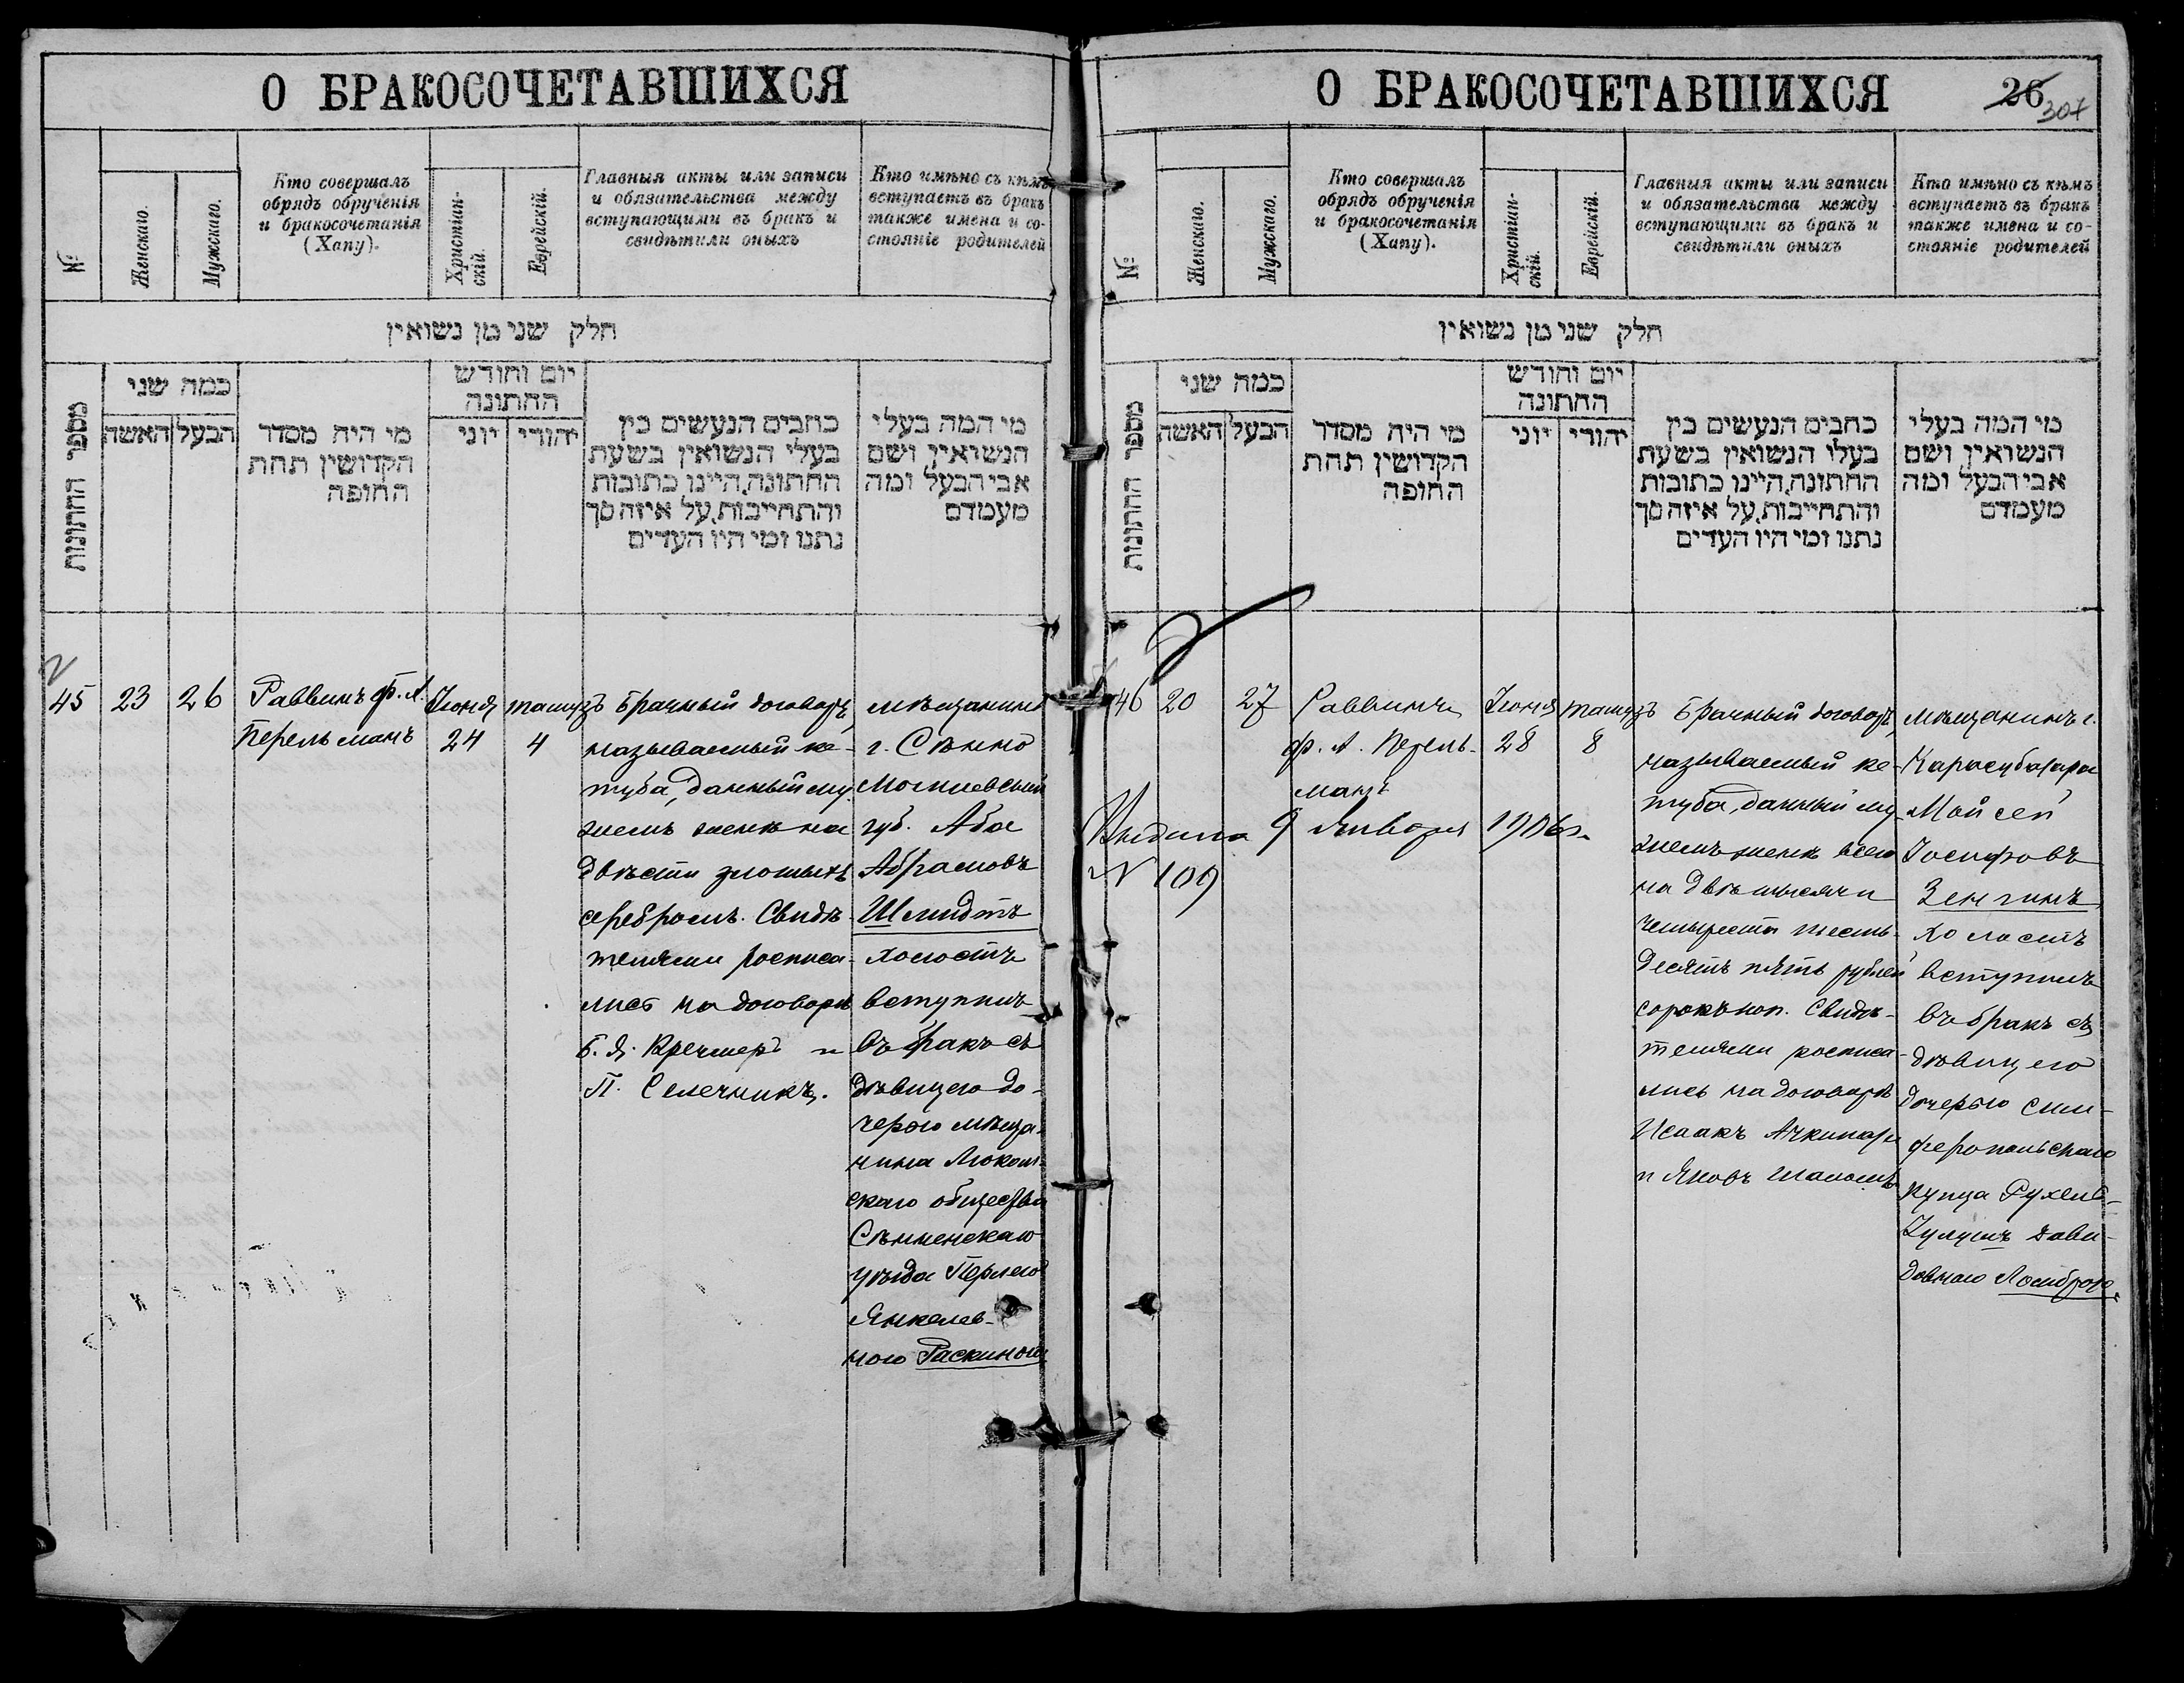 О БРАКОСОЧЕТАВШИХСЯ
№
Женскаго.
Мужскаго.
Кто совершалъ
обрядъ обрученія
и бракосочетанія
(Хапу).
Христіан-
скій.
Еврейскій.
Главныя акты или записи
и обязательства между
вступающими въ бракъ и
свидѣтили оныхъ
Кто имѣно съ кѣмъ
вступаетъ въ бракъ
также имена и со-
стояніе родителей
חלק שני מן נשואין
מספר החתונות
כמה שני
האשה
הבעל
מי היה מסדר
הקדושין תחת
החופה
יום וחודש
החתונה
יוני
יהודי
כתבים הנעשים בין
בעלי הנשואין בשעת
החתונה, היינו כתובות
והתחייבות, על איזה סך
נתנו ומי היו העדים
מי המה בעלי
הנשואין ושם
אבי הבעל ומה
מעמדם
45
23
26
Раввинъ Ф. А.
Перельманъ
Іюня
24
тамузъ
4
Брачный договоръ,
называемый ке-
туба, данный му
жемъ женѣ на
двѣсти злотыхъ
серебромъ. Свидѣ-
телями росписа-
лись на договорѣ
Б. Я. Кречмеръ и
П. Селечникъ.
мѣщанинъ
г. Сѣнно
Могилевской
губ. Аба
Абрамовъ
Шмидтъ
холостъ
вступилъ
въ бракъ съ
дѣвицею до-
черью мѣща-
нина
скаго общества
Сѣнненскаго
уѣзда Перлею
Янкелев-
ною Раскиною
О БРАКОСОЧЕТАВШИХСЯ
26
307
№
Женскаго.
Мужскаго.
Кто совершалъ
обрядъ обрученія
и бракосочетанія
(Хапу).
Христіан-
скій.
Еврейскій.
Главныя акты или записи
и обязательства между
вступающими въ бракъ и
свидѣтили оныхъ
Кто имѣно съ кѣмъ
вступаетъ въ бракъ
также имена и со-
стояніе родителей
חלק שני מן נשואין
מספר החתונות
כמה שני
האשה
הבעל
מי היה מסדר
הקדושין תחת
החופה
יום וחודש
החתונה
יוני
יהודי
כתבים הנעשים בין
בעלי הנשואין בשעת
החתונה, היינו כתובות
והתחייבות, על איזה סך
נתנו ומי היו העדים
מי המה בעלי
הנשואין ושם
אבי הבעל ומה
מעמדם
46
20
27
Раввинъ
Ф. А. Перель-
манъ
Іюня
28
тамузъ
8
Выдана 9 Января 1906 г.
№ 109
Брачный договоръ,
называемый ке-
туба, данный му
жемъ женѣ всего
на двѣ тысячи
четыреста шесть-
десятъ пять рублей
сорокъ коп. Свидѣ-
телями росписа-
лись на договорѣ
Исаакъ Ачкинази
и Яковъ Шаломъ
мѣщанинъ г.
Карасубазара
Мойсей
Іосифовъ
Зенгинъ
холостъ
вступилъ
въ бракъ съ
дѣвицею
дочерью сим-
феропольскаго
купца Рухель-
Гулушъ Дави-
довною Ломброзо